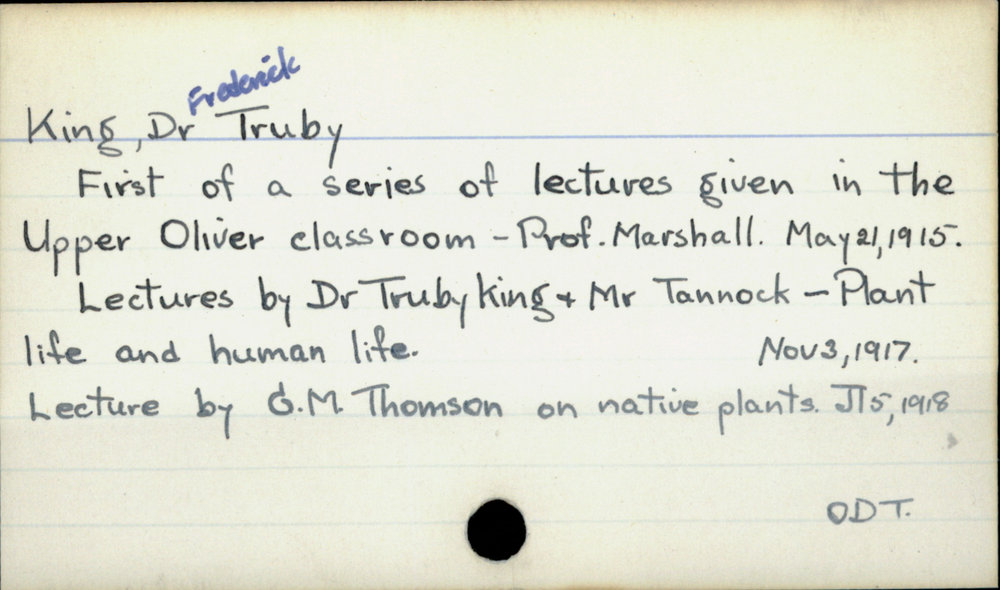 Frederick
King, Dr Truby
First of a series of lectures given in the
Upper Oliver classroom - Prof. Marshall. May 21, 1915.
Lectures by Dr Truby King + Mr Tannock - Plant
life and human life. Nov 3, 1917.
Lecture by G.M. Thomson on native plants. Jl 5, 1918
ODT.